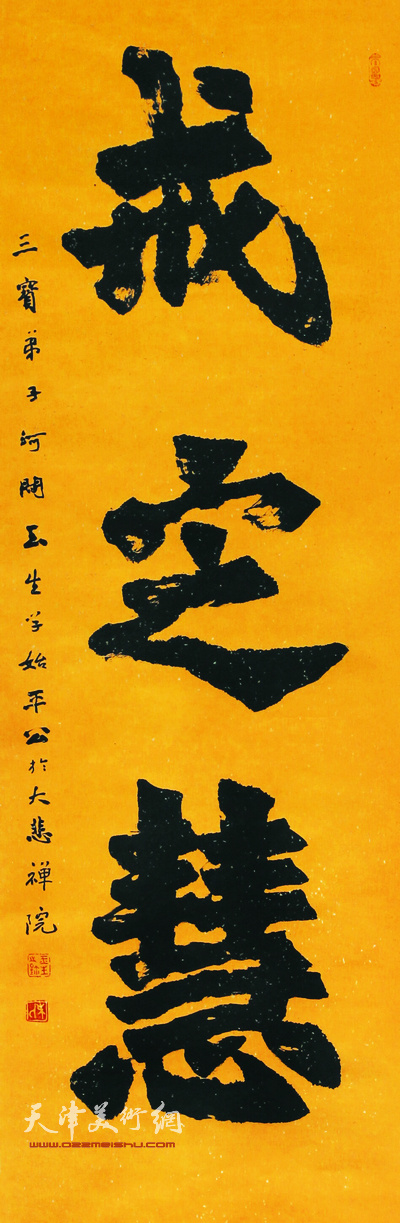 戒定慧
三寳弟子河間玉生学始平公於大悲禅院
天津美術網
www.022meishu.com